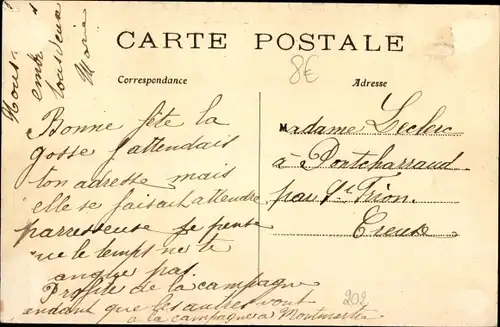 Nous
embr
tous deux
Marie
CARTE POSTALE
8€
Correspondance
Adresse
Bonne fête la
gosse j'attendais
ton adresse mais
elle se faisait attendre
parresseuse je pense
que le temps ne te
pas.
Profite de la campagne
endant que les autres vont
à la campagne à Montmartre
Madame Leclerc
à Pontcharraud
par St Frion
Creuse
202